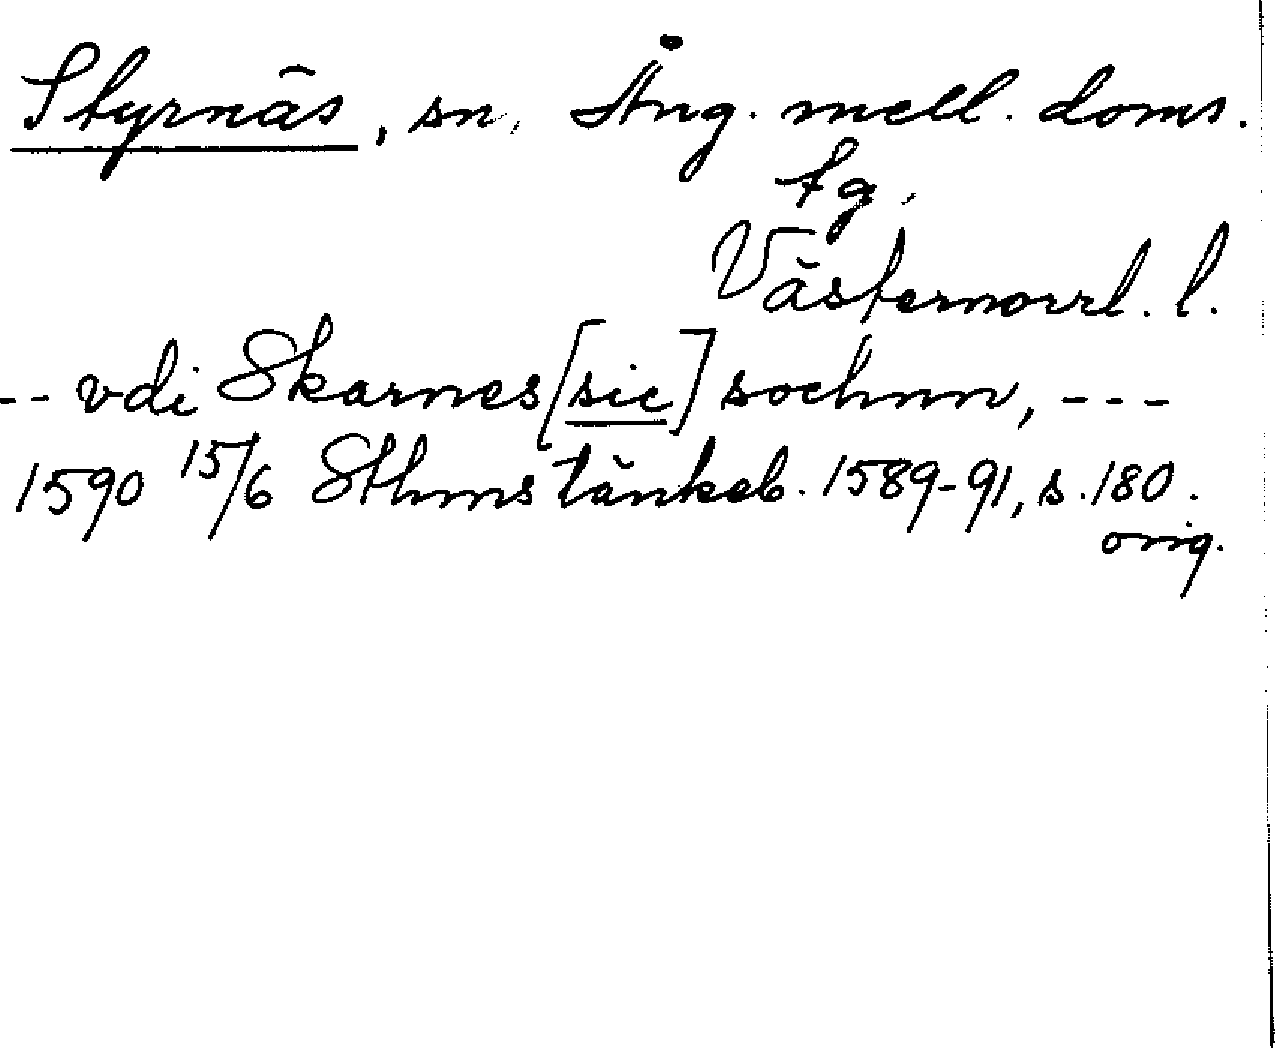 Styrnäs, sn. Ång. mell. doms.
tg.
Västernorrl. l.
-- vdi Skarnes [sic] sochnn, ---
1590 15/6 Sthms tänkeb. 1589-91, s. 180.
orig.